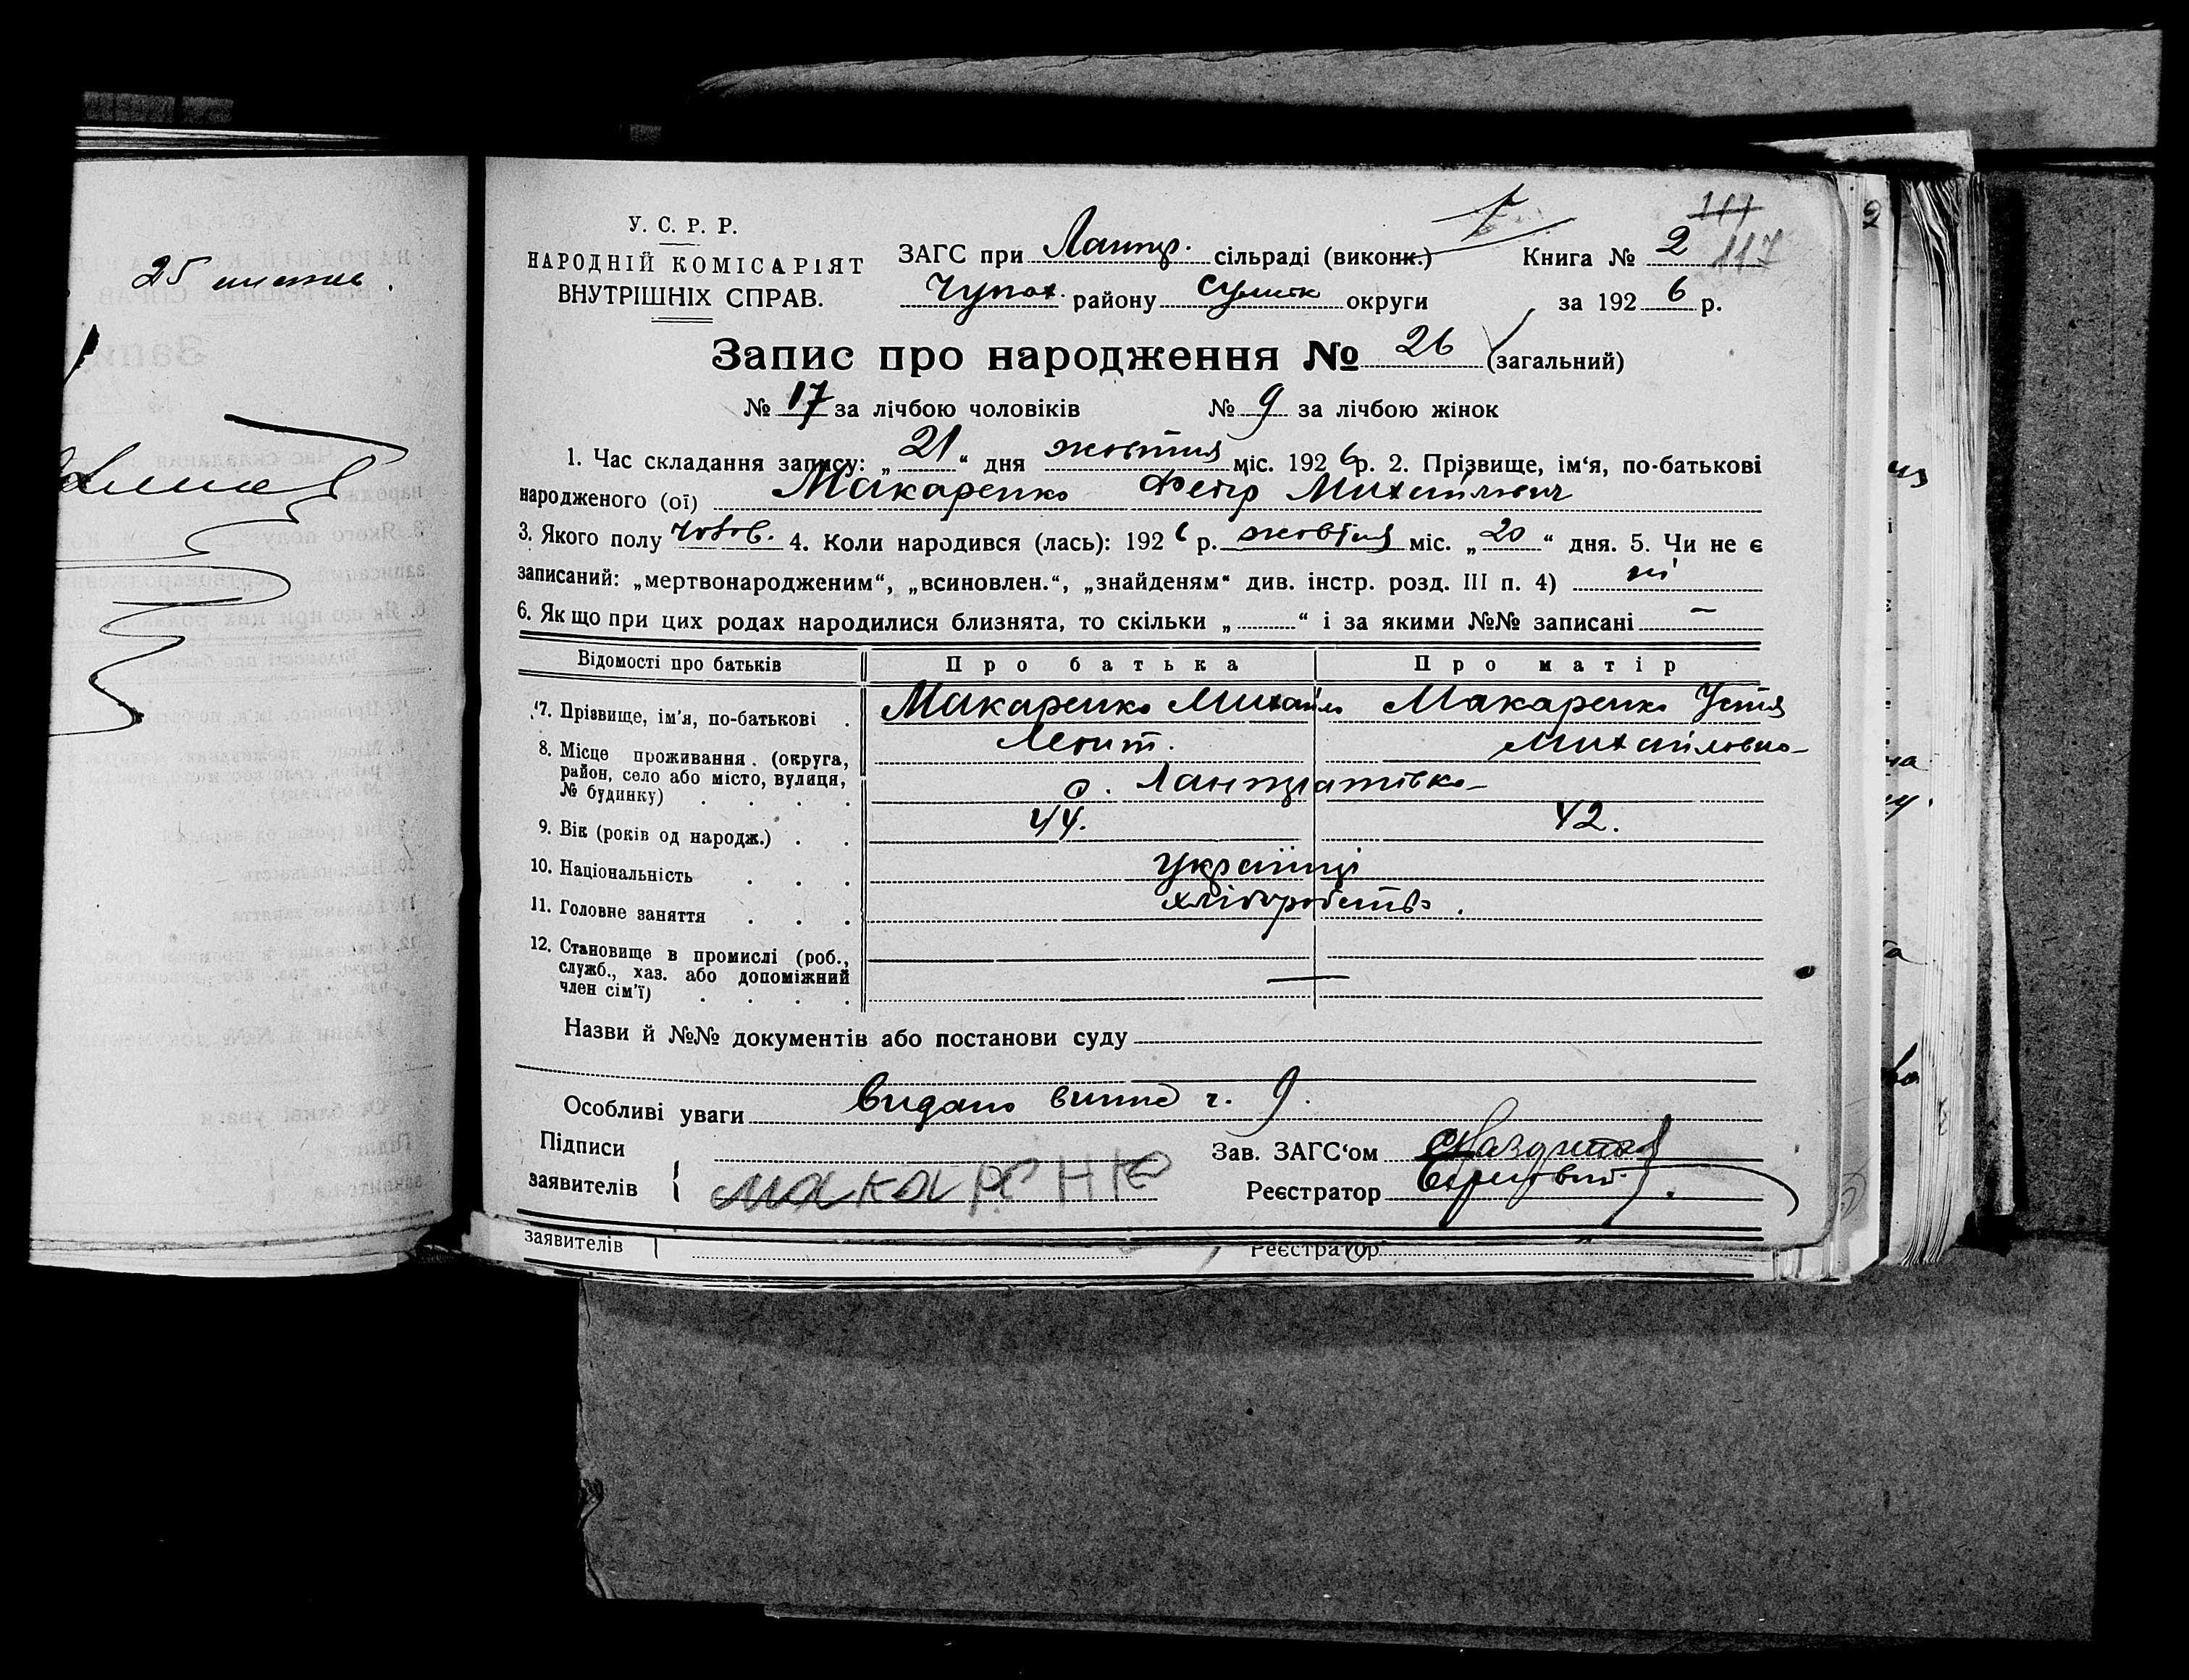 25 листів.
У. С. Р. Р.
НАРОДНІЙ КОМІСАРІЯТ
ВНУТРІШНІХ СПРАВ.
ЗАГС при Лантр. сільраді (виконк.)
Чупах. району Сумськ округи
117
Книга № 2 117
за 192 6 р.
Запис про народження № 26 (загальний)
№ 17 за лічбою чоловіків № 9 за лічбою жінок
1. Час складання запису: „ 21 “ дня жовтня міс. 192 6 р. 2. Прізвище, ім'я, по-батькові
народженого (ої) Макаренко Михайлович
3. Якого полу чолов. 4. Коли народився (лась): 192 6 р. жовтня міс. „ 20 “ дня. 5. Чи не є
записаний: „мертвонародженим“, „всиновлен.“, „знайденям“ див. інстр. розд. III п. 4) ні
6. Якщо при цих родах народилися близнята, то скільки „ “ і за якими №№ записані —
Відомості про батьків Про батька Про матір
7. Прізвище, ім'я, по-батькові . Макаренко Михайло Макаренко Устя
Леонт. Михайловна
8. Місце проживання. (округа,
район, село або місто, вулиця,
№ будинку) . . . . с. Лантратівка
9. Вік (років од народж.) . . 44. 42.
10. Національність . . . Українці
11. Головне заняття . . . хліборобство.
12. Становище в промислі (роб.,
служб., хаз. або допоміжний
член сім'ї) . . . . —
Назви й №№ документів або постанови суду
Особливі уваги Видано випис ч. 9.
Підписи
заявителів { Макаренко
Зав. ЗАГС‘ом
Реєстратор
заявителів Реєстратор